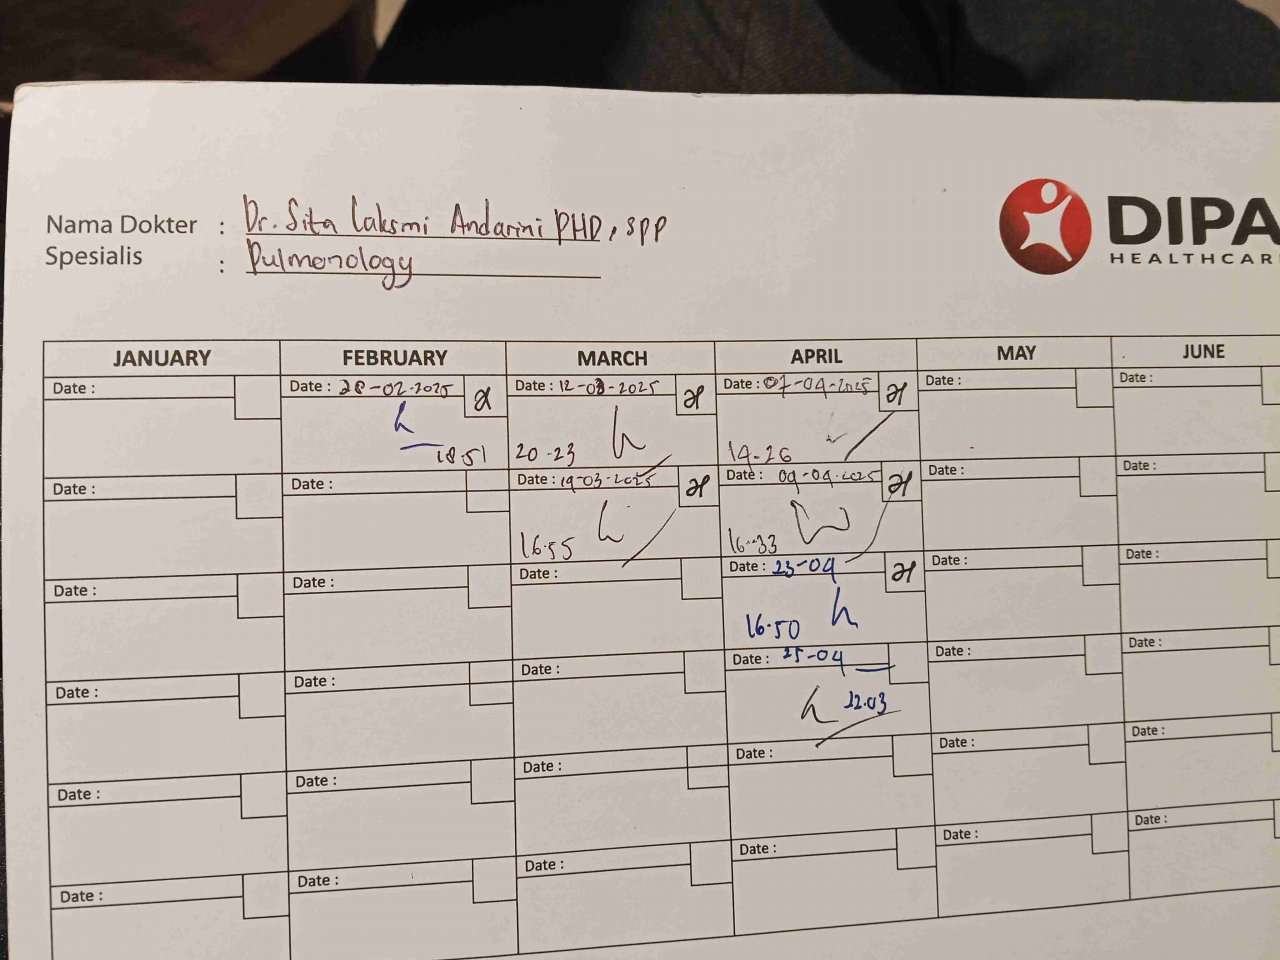 Nama Dokter : Dr. Sita Laksmi Andarini PHD, SPP
Spesialis : Pulmonology
DIPA
HEALTHCAR
JANUARY FEBRUARY MARCH APRIL MAY JUNE
Date : Date : 28-02-2025 Date : 12-03-2025 Date : 07-04-2025 Date : Date :
18.51 20-23 19-26
Date : Date : Date : 19-03-2025 Date : 09-04-2025 Date : Date :
16.55 16-33
Date : Date : Date : Date : 23-04 Date : Date :
16.50
Date : Date : Date : Date : 25-04 Date : Date :
12.03
Date : Date : Date : Date : Date : Date :
Date : Date : Date : Date : Date : Date :